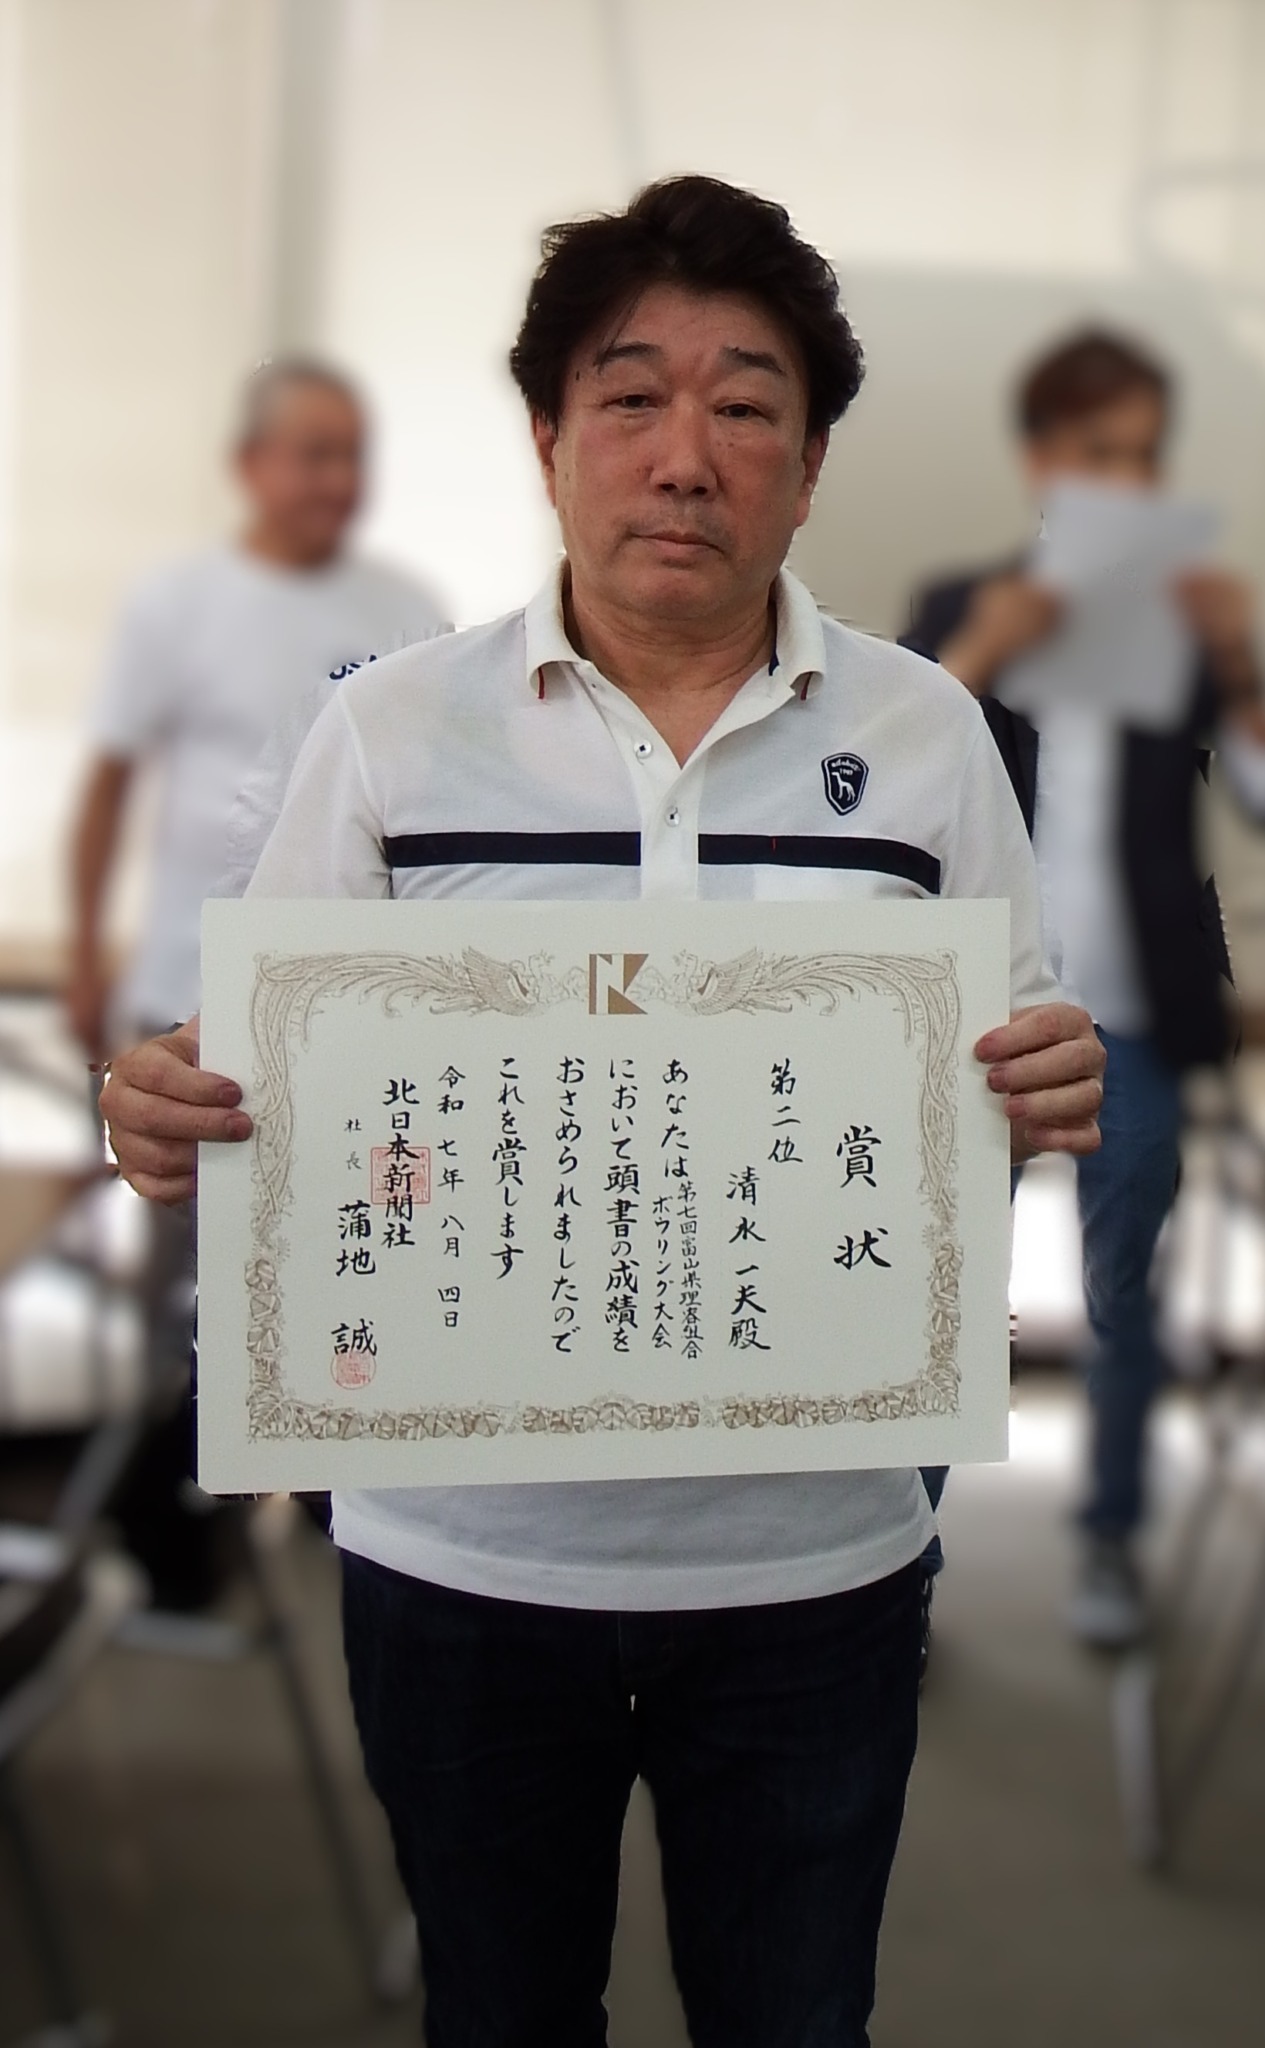 賞状
第二位
清水一夫殿
あなたは第七回富山県理容組合
ボウリング大会
において頭書の成績を
おさめられましたので
これを賞します
令和七年八月四日
北日本新聞社
社長 蒲地誠